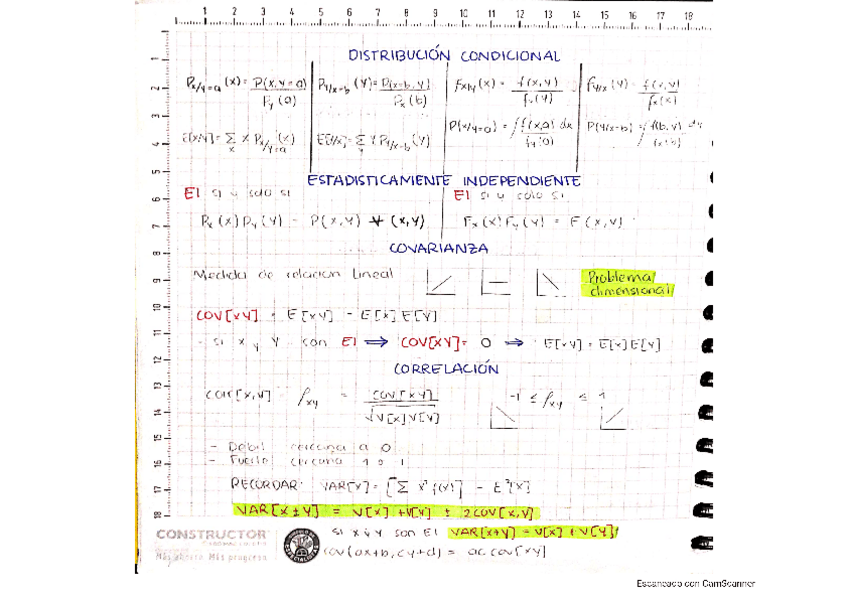 1 2 3 4 5 6 7 8 9 10 11 12 13 14 15 16 17 18
DISTRIBUCIÓN CONDICIONAL
P_{X/Y=a}(x) = P(x, Y=a) / P_Y(a)
P_{Y/X=b}(Y) = P(x=b, Y) / P_X(b)
f_{X/Y}(x) = f(x,Y) / f_Y(Y)
f_{Y/X}(Y) = f(x,Y) / f_X(x)
E[X/Y] = Σ_x x P_{X/Y=a}(x)
E[Y/X] = Σ_Y Y P_{Y/X=b}(Y)
P(X/Y=a) = ∫ f(x,a) dx / f_Y(a)
P(Y/X=b) = ∫ f(b,Y) dy / f_X(b)
ESTADISTICAMENTE INDEPENDIENTE
EI si y solo si
EI si y solo si
P_X(x) P_Y(Y) = P(x,Y) ∀ (x,Y)
F_X(x) F_Y(Y) = F(x,Y)
COVARIANZA
Medida de relación lineal
Problema
dimensional
COV[XY] = E[XY] - E[X]E[Y]
- si X y Y son EI ⟹ COV[XY] = 0 ⟹ E[XY] = E[X]E[Y]
CORRELACIÓN
corr[X,Y] = ρ_{XY} = COV[XY] / √V[X]V[Y]
-1 ≤ ρ_{XY} ≤ 1
- Débil cercana a 0
- Fuerte cercana
RECORDAR VAR[X] = [Σ x² f(x)] - E²[X]
VAR[X±Y] = V[X] + V[Y] ± 2COV[X,Y]
si X y Y son EI VAR[X+Y] = V[X] + V[Y]
COV(aX+b, cY+d) = ac COV[XY]
CONSTRUCTOR
Más progreso
Escaneado con CamScanner